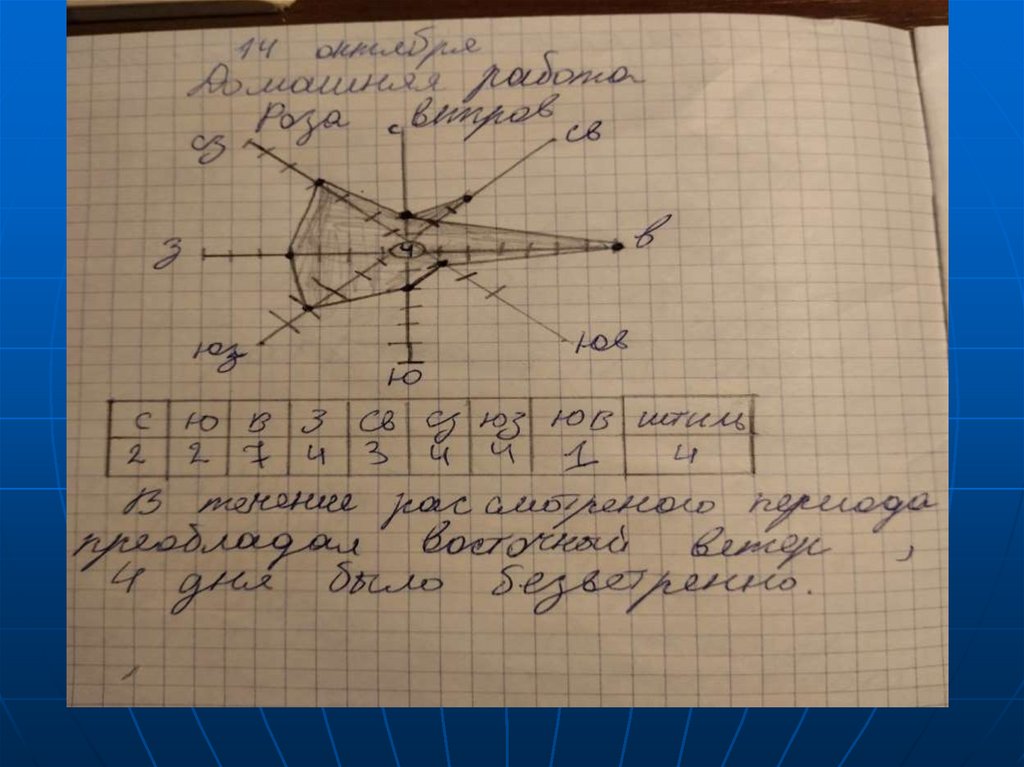 14 октября
Домашняя работа
Роза ветров
С
СВ
СЗ
З
4
В
ЮЗ
ЮВ
Ю
С Ю В З СВ СЗ ЮЗ ЮВ штиль
2 2 7 4 3 4 4 1 4
В течение рассмотреного периода
преобладал восточный ветер ,
4 дня было безветренно.